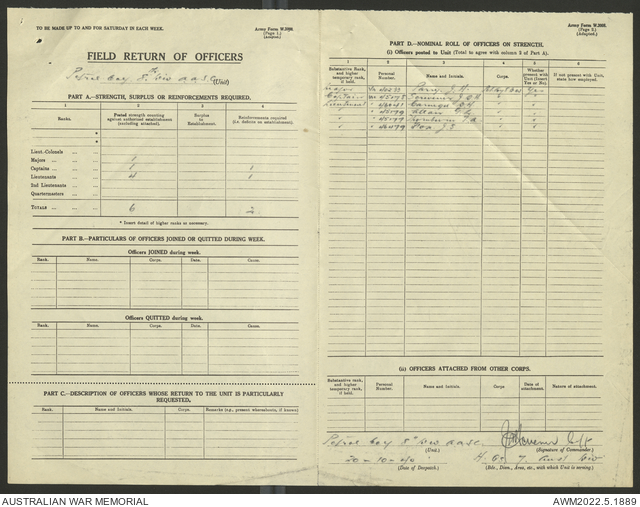 TO BE MADE UP TO AND FOR SATURDAY IN EACH WEEK.
Army Form W.3008.
(Page 1.)
(Adapted.)
FIELD RETURN OF OFFICERS
Petrol Coy 8 Div A.A.S.C. (Unit)
PART A.—STRENGTH, SURPLUS OR REINFORCEMENTS REQUIRED.
1 2 3 4
Ranks. Posted strength counting against authorised establishment (excluding attached). Surplus to Establishment. Reinforcements required (i.e. deficits on establishment).
*
*
Lieut.-Colonels
Majors 1
Captains 1 1
Lieutenants 4 1
2nd Lieutenants
Quartermasters
TOTALS 6 2
* Insert detail of higher ranks as necessary.
PART B.—PARTICULARS OF OFFICERS JOINED OR QUITTED DURING WEEK.
Officers JOINED during week.
Rank. Name. Corps. Date. Cause.
Officers QUITTED during week.
Rank. Name. Corps. Date. Cause.
PART C.—DESCRIPTION OF OFFICERS WHOSE RETURN TO THE UNIT IS PARTICULARLY REQUESTED.
Rank. Name and Initials. Corps. Remarks (e.g., present whereabouts, if known)
Army Form W.3008.
(Page 2.)
(Adapted.)
PART D.—NOMINAL ROLL OF OFFICERS ON STRENGTH.
(i) Officers posted to Unit (Total to agree with column 2 of Part A).
1 2 3 4 5 6
Substantive Rank, and higher temporary rank, if held. Personal Number. Name and Initials. Corps. Whether present with Unit (Insert Yes or No). If not present with Unit, state how employed.
Major Yes
Captain
Lieutenant
(ii) OFFICERS ATTACHED FROM OTHER CORPS.
Substantive rank, and higher temporary rank, if held. Personal Number. Name and Initials. Corps. Date of attachment. Nature of attachment.
Petrol Coy 8 Div A.A.S.C.
(Unit.) (Signature of Commander.)
30-10-40
(Date of Despatch.) (Bde., Divn., Area, etc., with which Unit is serving.)
AUSTRALIAN WAR MEMORIAL AWM2022.5.1889